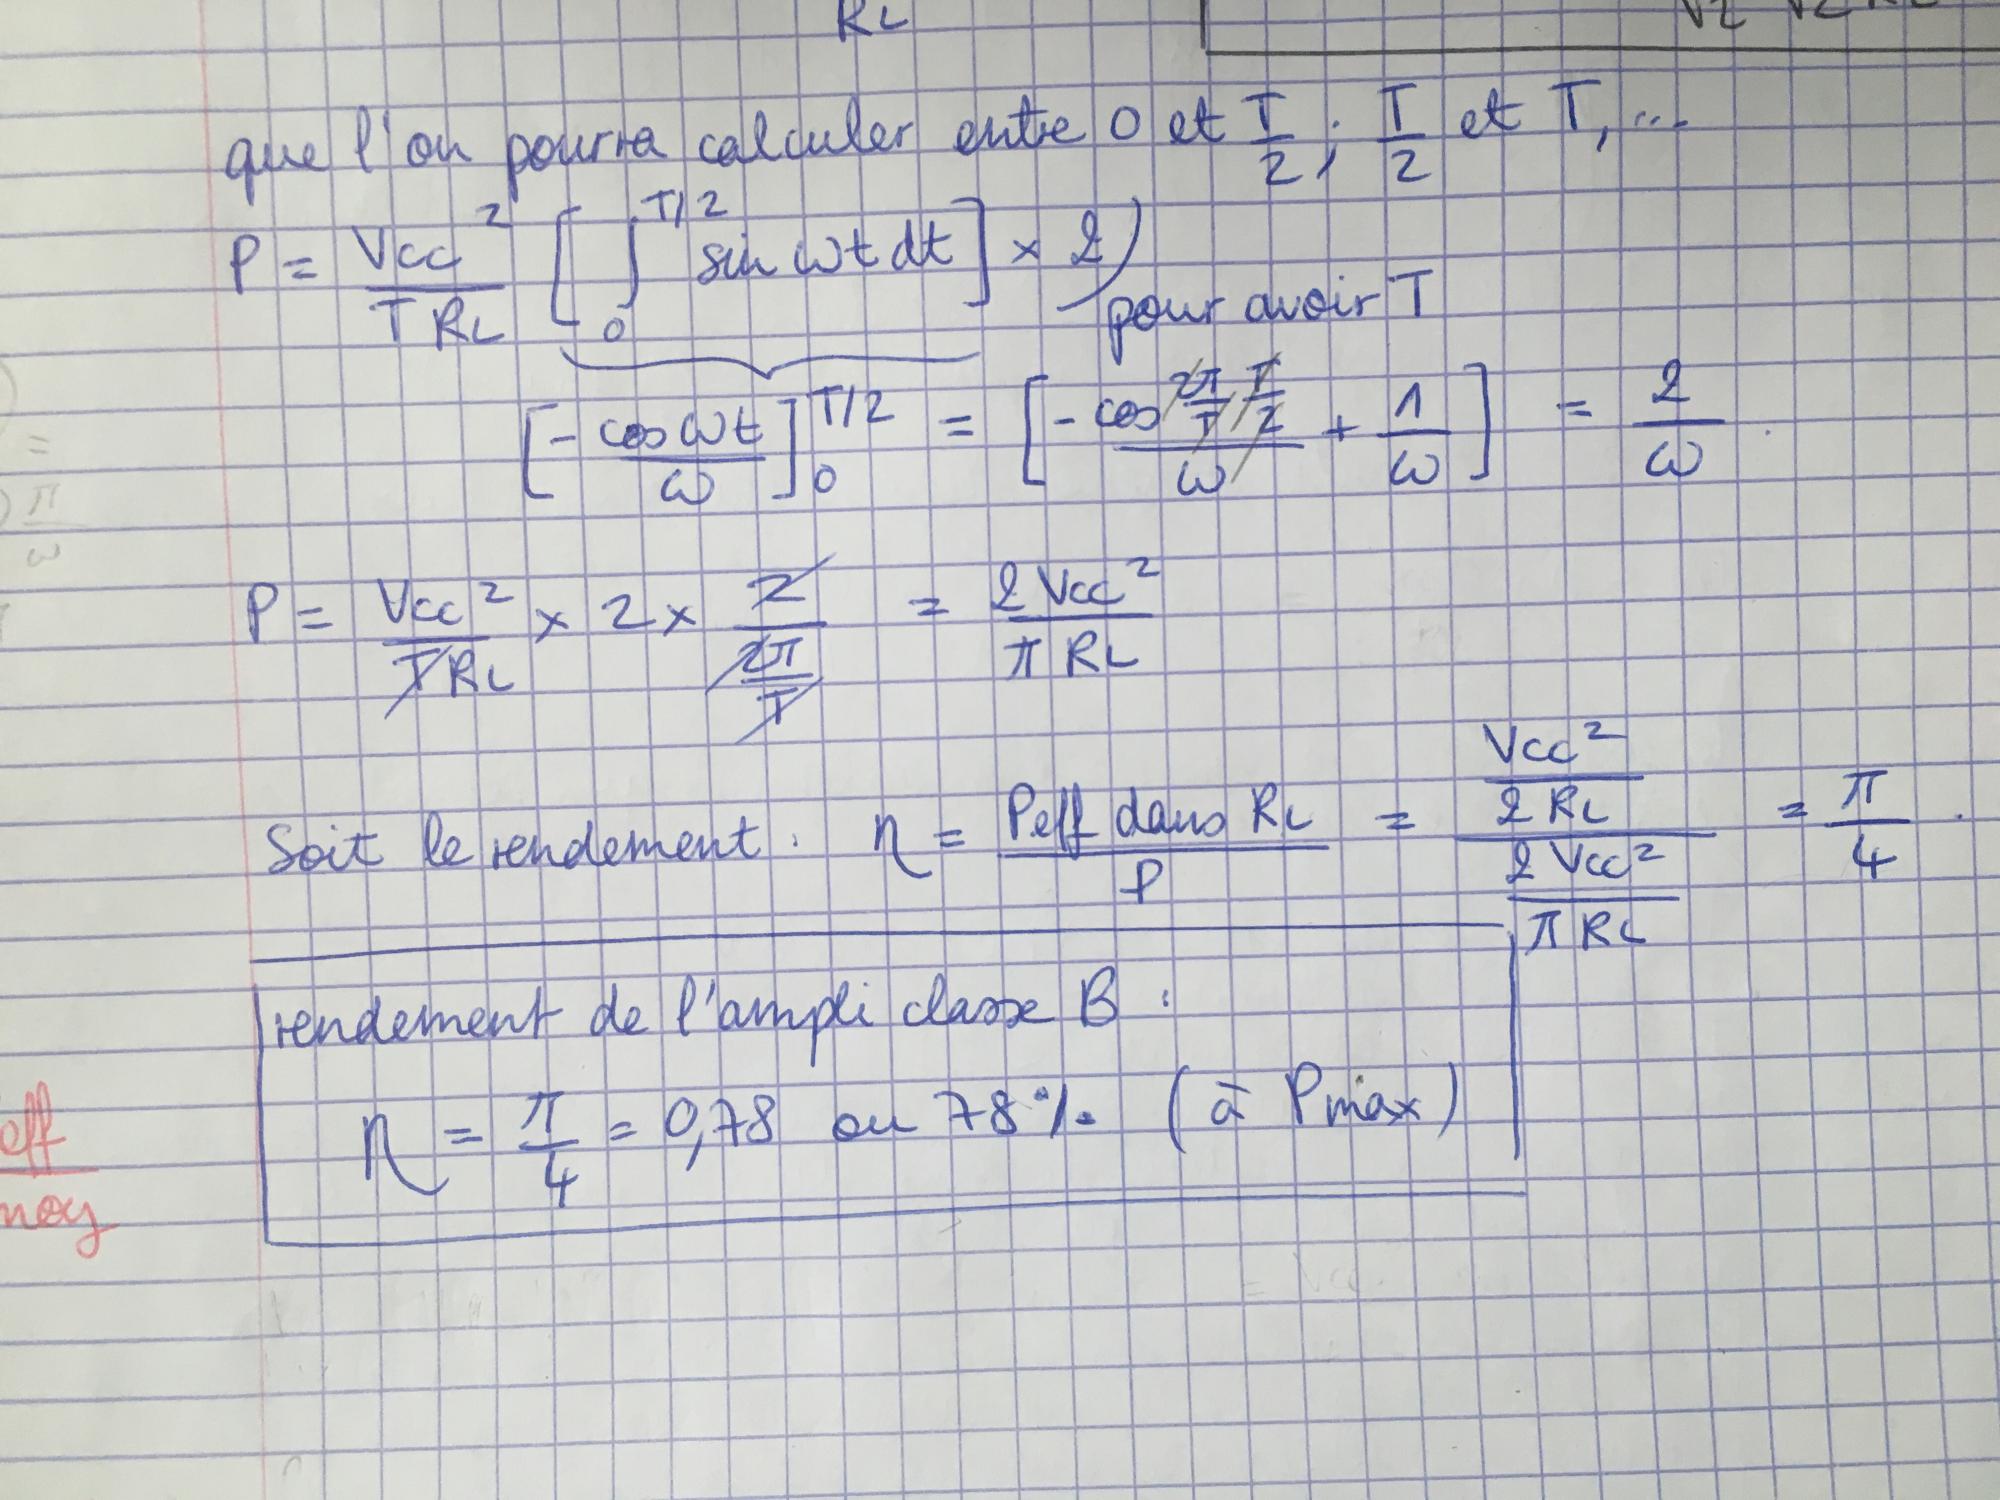 RL
√2 √2 RL
que l'on pourra calculer entre 0 et T/2 ; T/2 et T, ...
P = Vcc²/(T RL) [∫₀^(T/2) sin ωt dt] × 2
pour avoir T
[-cos ωt/ω]₀^(T/2) = [-cos (2π/T · T/2)/ω + 1/ω] = 2/ω.
P = Vcc²/(T RL) × 2 × 2/(2π/T) = 2 Vcc²/(π RL)
Soit le rendement. η = Peff dans RL / P = (Vcc²/(2 RL)) / (2 Vcc²/(π RL)) = π/4.
rendement de l'ampli classe B :
η = π/4 = 0,78 ou 78% (à Pmax)
=
π/ω
eff
moy
= Vcc